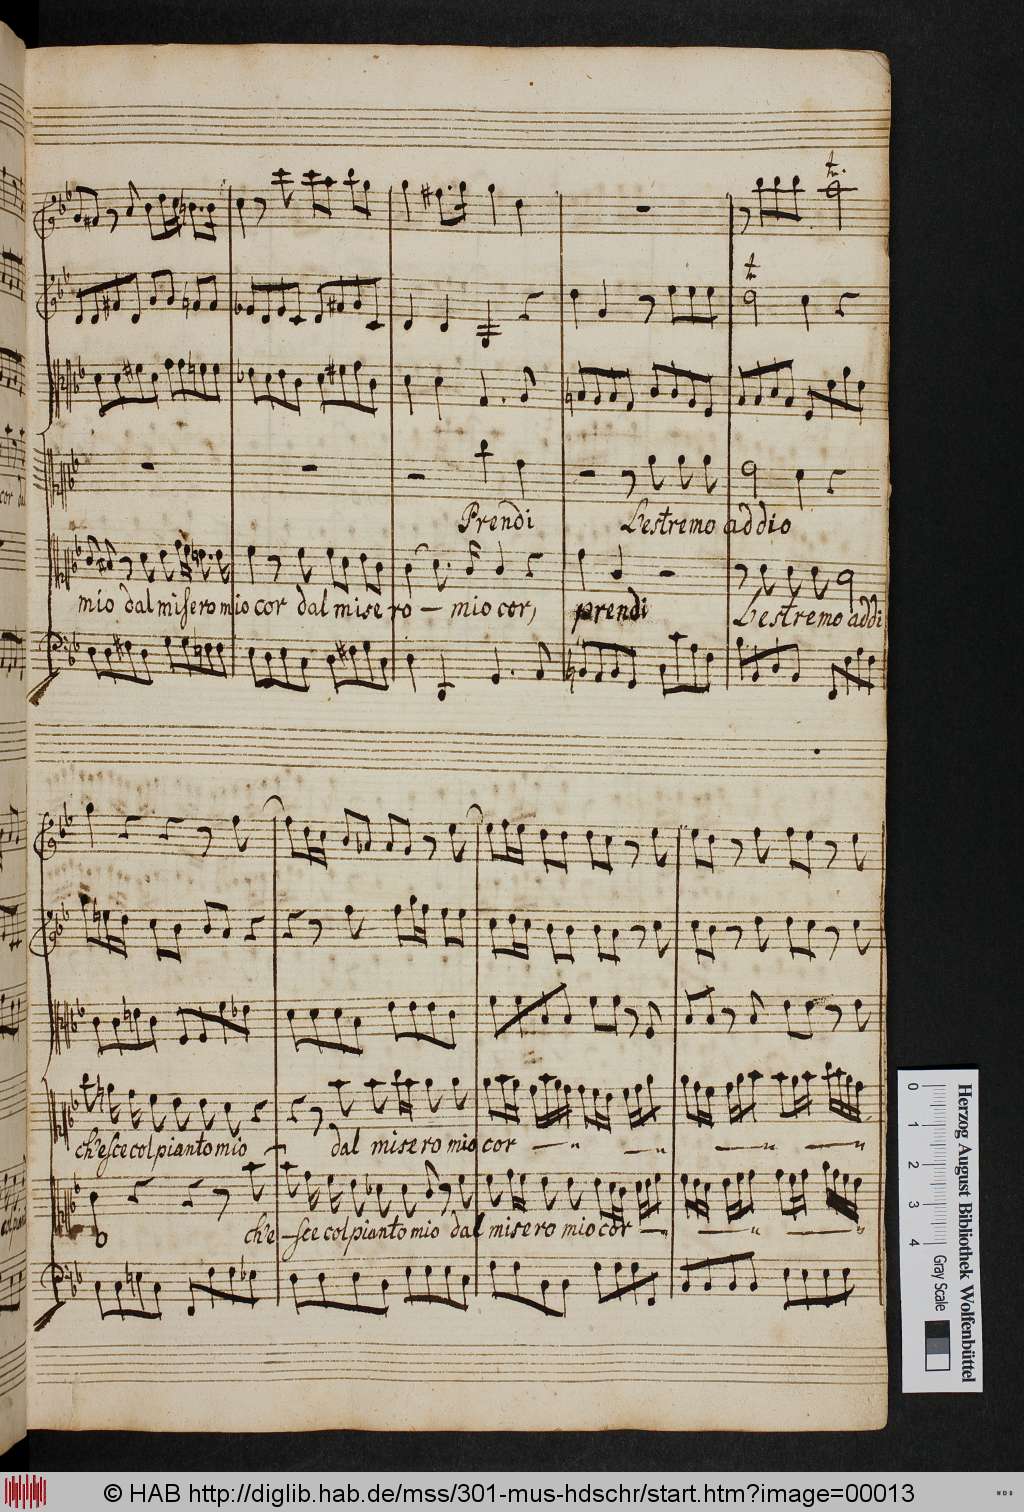 tr.
tr
cor dal
Prendi L'estremo addio
mio dal misero mio cor dal misero — mio cor, prendi L'estremo addi
ch'esce col pianto mio — dal misero mio cor — „ — „ — „ — „
ch'e — sce col pianto mio dal misero mio cor — „ — „ — „
0 1 2 3 4
Herzog August Bibliothek Wolfenbüttel
Gray Scale
© HAB http://diglib.hab.de/mss/301-mus-hdschr/start.htm?image=00013